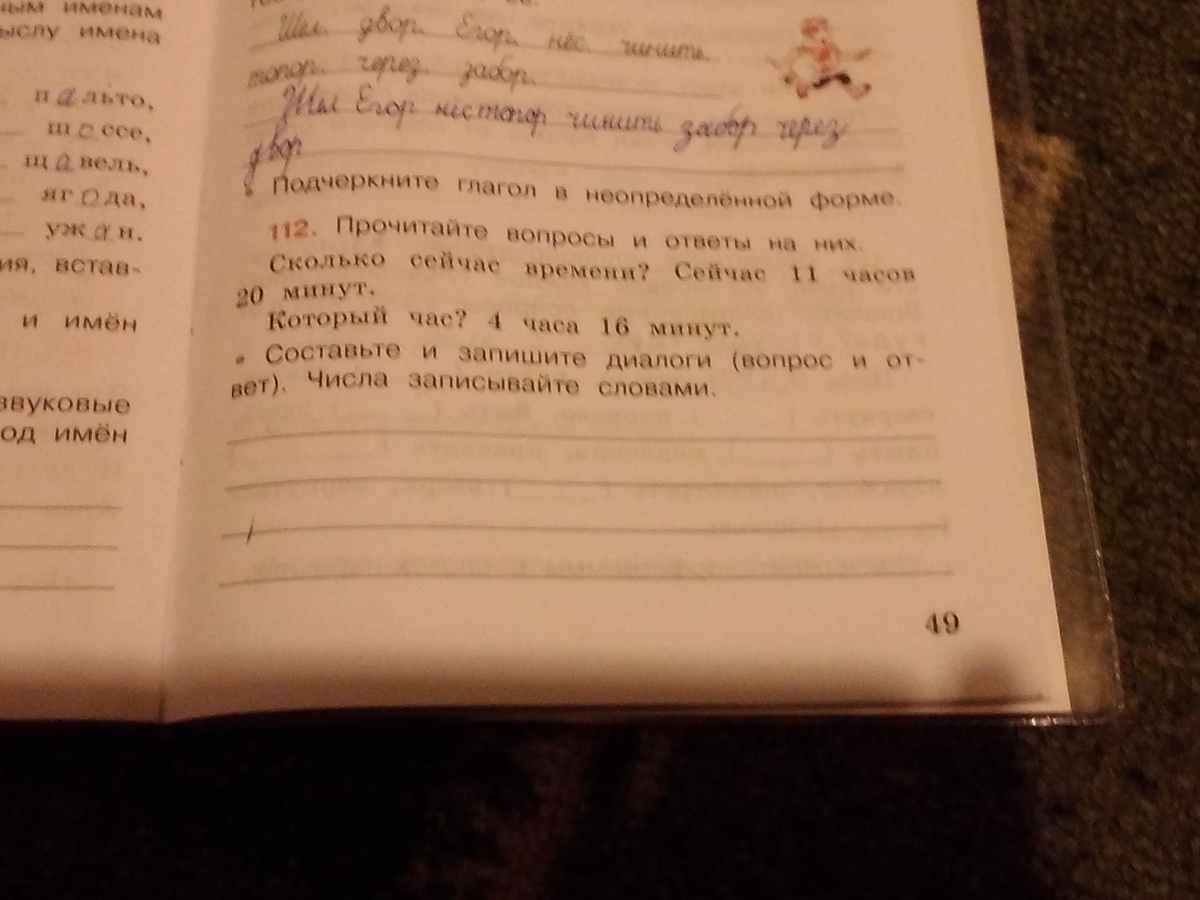 ным именам
ыслу имена
пальто,
шоссе,
щавель,
ягода,
ужан.
ия, встав-
и имён
звуковые
од имён
Шл. двор. Егор. нёс. чинить.
топор. через. забор.
Шел Егор нес топор чинить забор через
двор
• Подчеркните глагол в неопределённой форме.
112. Прочитайте вопросы и ответы на них.
Сколько сейчас времени? Сейчас 11 часов
20 минут.
Который час? 4 часа 16 минут.
• Составьте и запишите диалоги (вопрос и от-
вет). Числа записывайте словами.
49